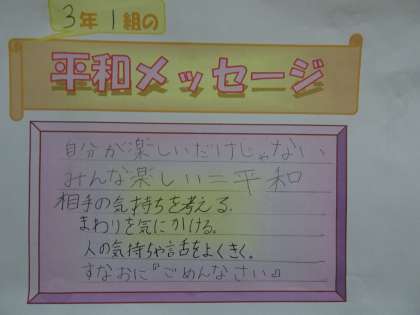 3年1組の
平和メッセージ
自分が楽しいだけじゃない、
みんな楽しい＝平和
相手の気持ちを考える。
まわりを気にかける。
人の気持ちや言舌をよくきく。
すなおに『ごめんなさい』